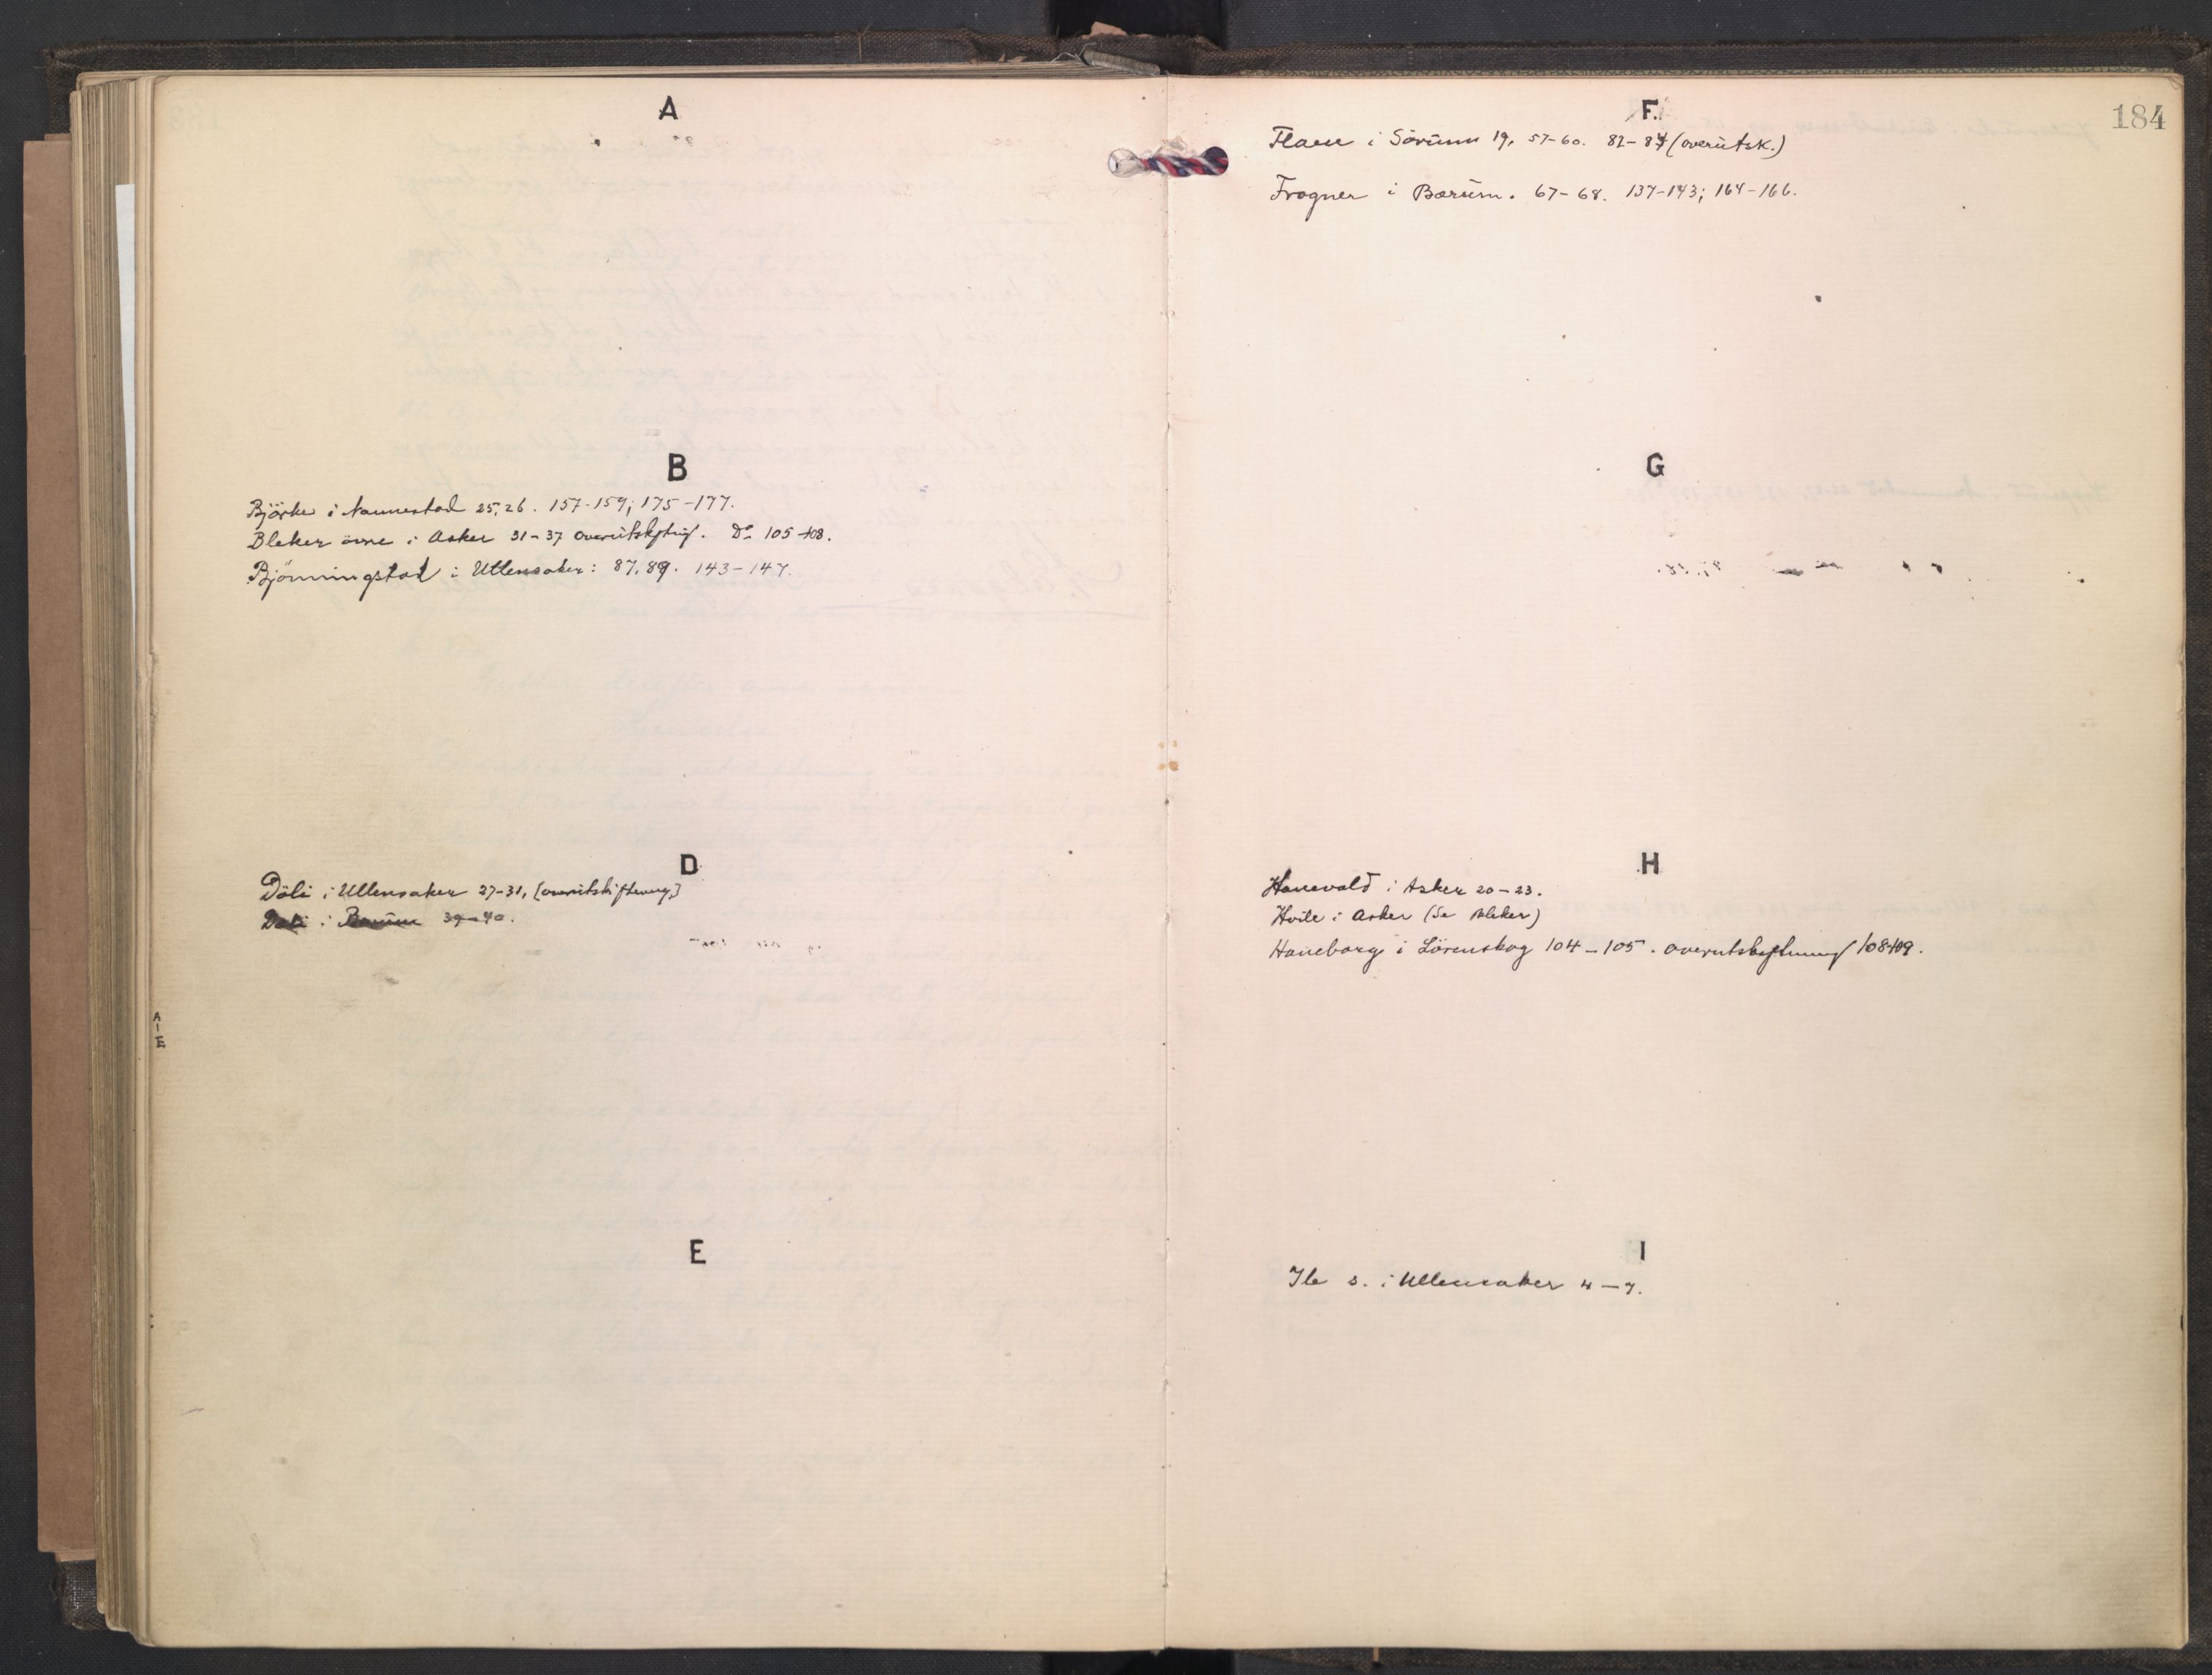 A
B
Björke i Nannestad 25,26. 157-159; 175-177.
Bleker övre i Asker 31-37 overutskiftning. Do 105-108.
Bjönningstad i Ullensaker: 87,89. 143-147.
D
Döli i Ullensaker 27-31, (overutskiftning)
Döli i Bærum 39-40.
A-E
E
184
F.
i Sörum 19, 57-60. 82-84 (overutsk.)
Frogner i Bærum. 67-68. 137-143; 164-166.
G
H
Hanevold i Asker 20-23.
Hvile i Asker (Se Bleker)
Haneborg i Lörenskog 104-105. overutskiftning 108-109.
I
Ile s. i Ullensaker 4-7.